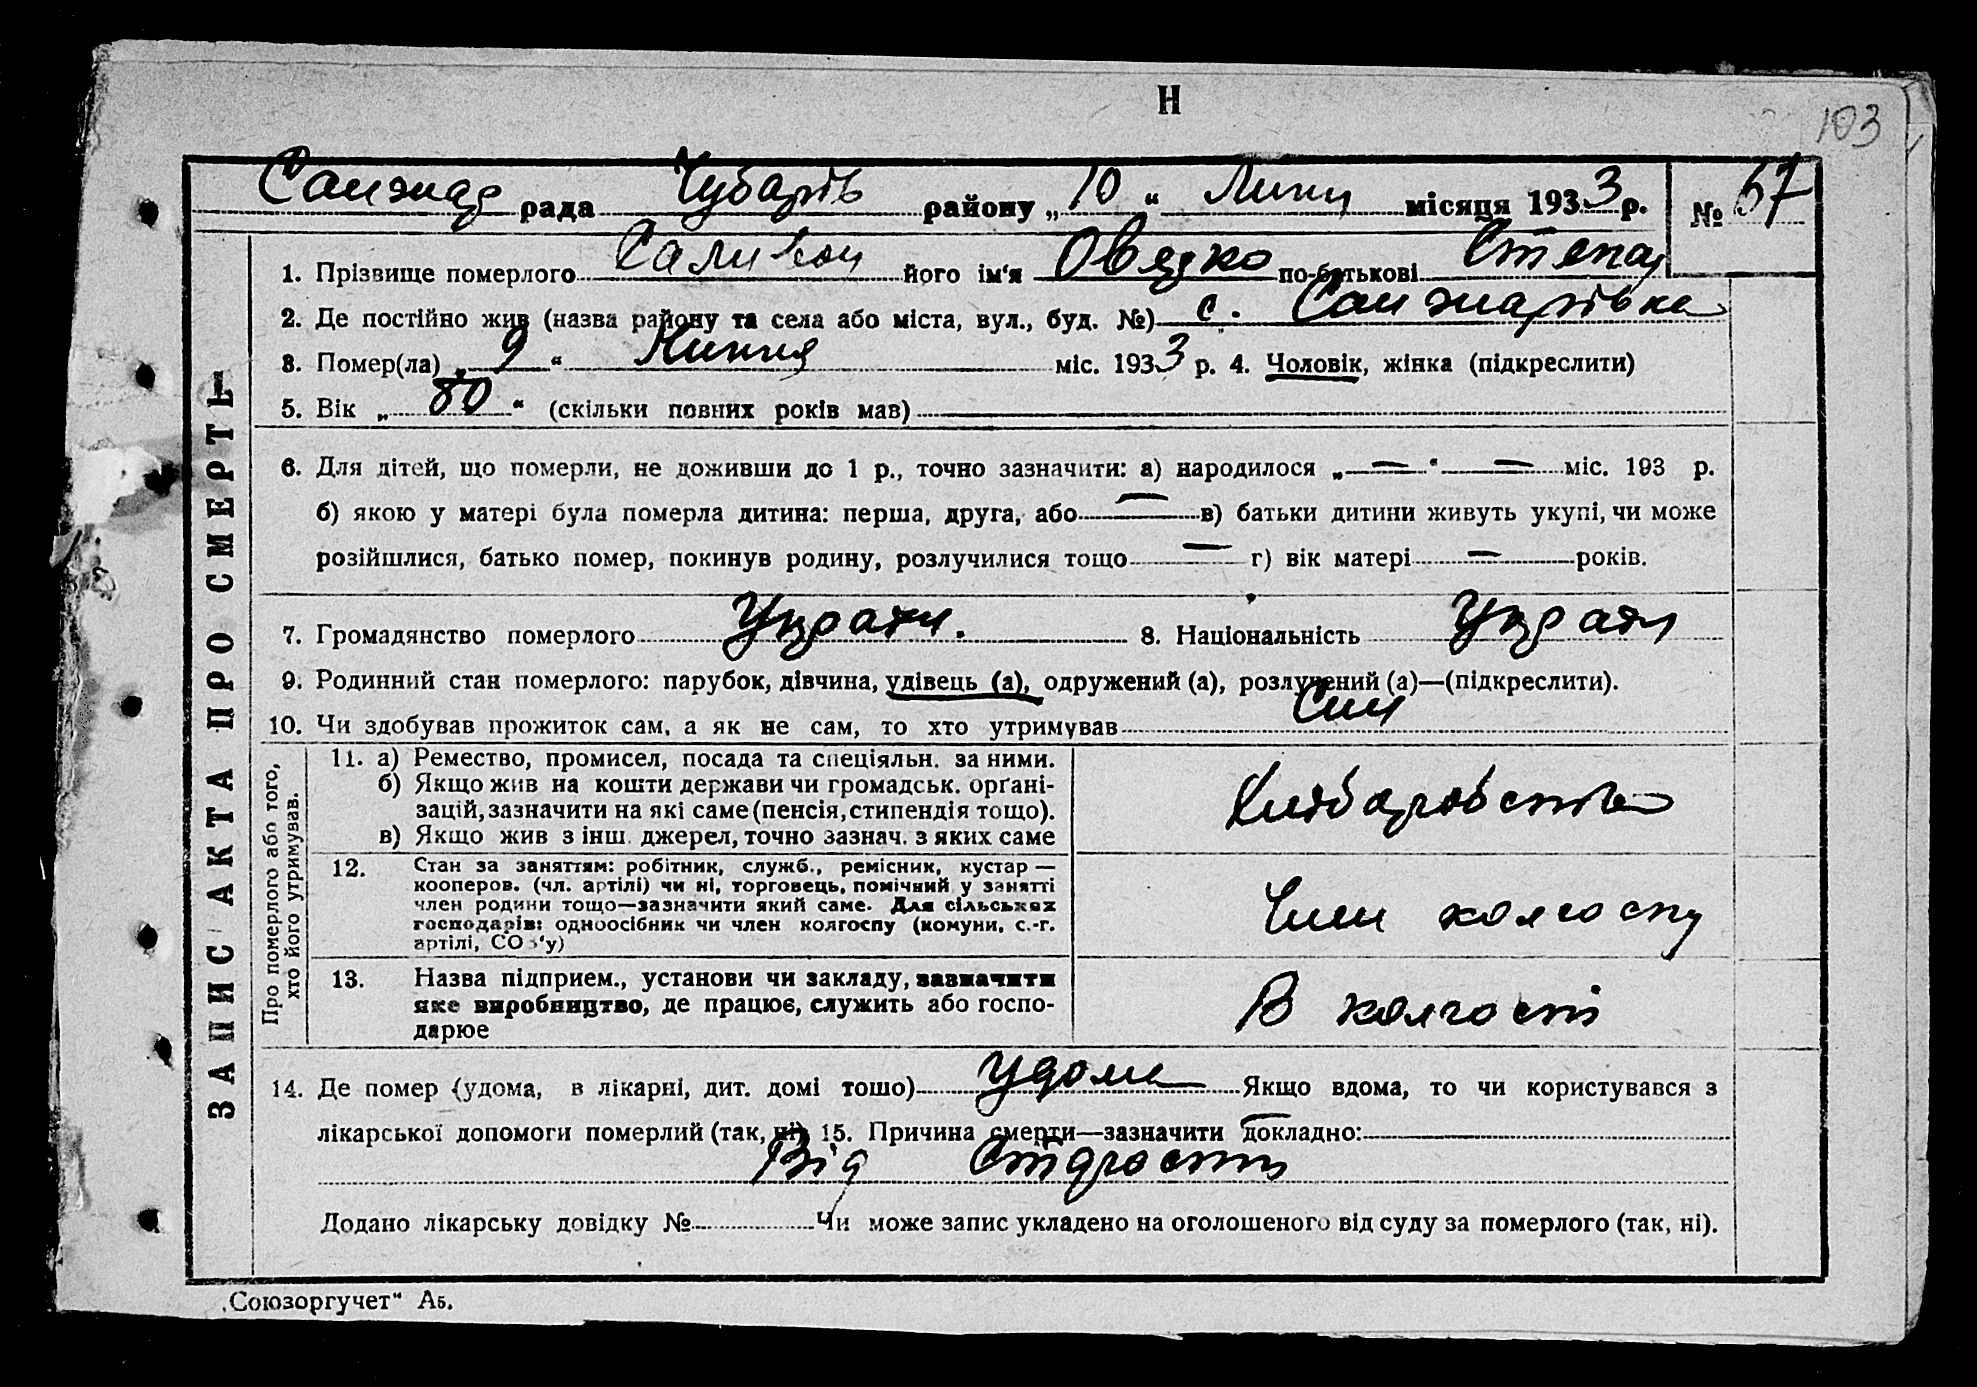 Н
103
Санжар рада Чубарів району „ 10 “ Липц місяця 1933 р. № 57
1. Прізвище померлого його ім'я Овдько по-батькові Степан
2. Де постійно жив (назва району та села або міста, вул., буд. №) с. Санжарівка
3. Помер(ла) „ 9 “ Липця міс. 1933 р. 4. Чоловік, жінка (підкреслити)
5. Вік „ 80 “ (скільки повних років мав)
6. Для дітей, що померли, не доживши до 1 р., точно зазначити: а) народилося „ — “ — міс. 193 р.
б) якою у матері була померла дитина: перша, друга, або — в) батьки дитини живуть укупі, чи може
розійшлися, батько помер, покинув родину, розлучилися тощо — г) вік матері — років.
7. Громадянство померлого 8. Національність
9. Родинний стан померлого: парубок, дівчина, удівець (а), одружений (а), розлучений (а)—(підкреслити).
10. Чи здобував прожиток сам, а як не сам, то хто утримував Син
ЗАПИС АКТА ПРО СМЕРТЬ
Про померлого або того,
хто його утримував.
11. а) Ремество, промисел, посада та спеціяльн. за ними.
б) Якщо жив на кошти держави чи громадськ. орґані-
зацій, зазначити на які саме (пенсія, стипендія тощо).
в) Якщо жив з інш. джерел, точно зазнач. з яких саме
Хліборобство
12. Стан за заняттям: робітник, служб., ремісник, кустар —
кооперов. (чл. артілі) чи ні, торговець, помічний у занятті
член родини тощо—зазначити який саме. Для сільських
господарів: одноосібник чи член колгоспу (комуни, с.-г.
артілі, СОЗ'у)
Член колгоспу
13. Назва підприєм., установи чи закладу, зазначити
яке виробництво, де працює, служить або госпо-
дарює
В колгоспі
14. Де помер (удома, в лікарні, дит. домі тощо) удома Якщо вдома, то чи користувався з
лікарської допомоги померлий (так, ні) 15. Причина смерти—зазначити докладно:
Від старости
Додано лікарську довідку № Чи може запис укладено на оголошеного від суду за померлого (так, ні).
„Союзоргучет" А5.